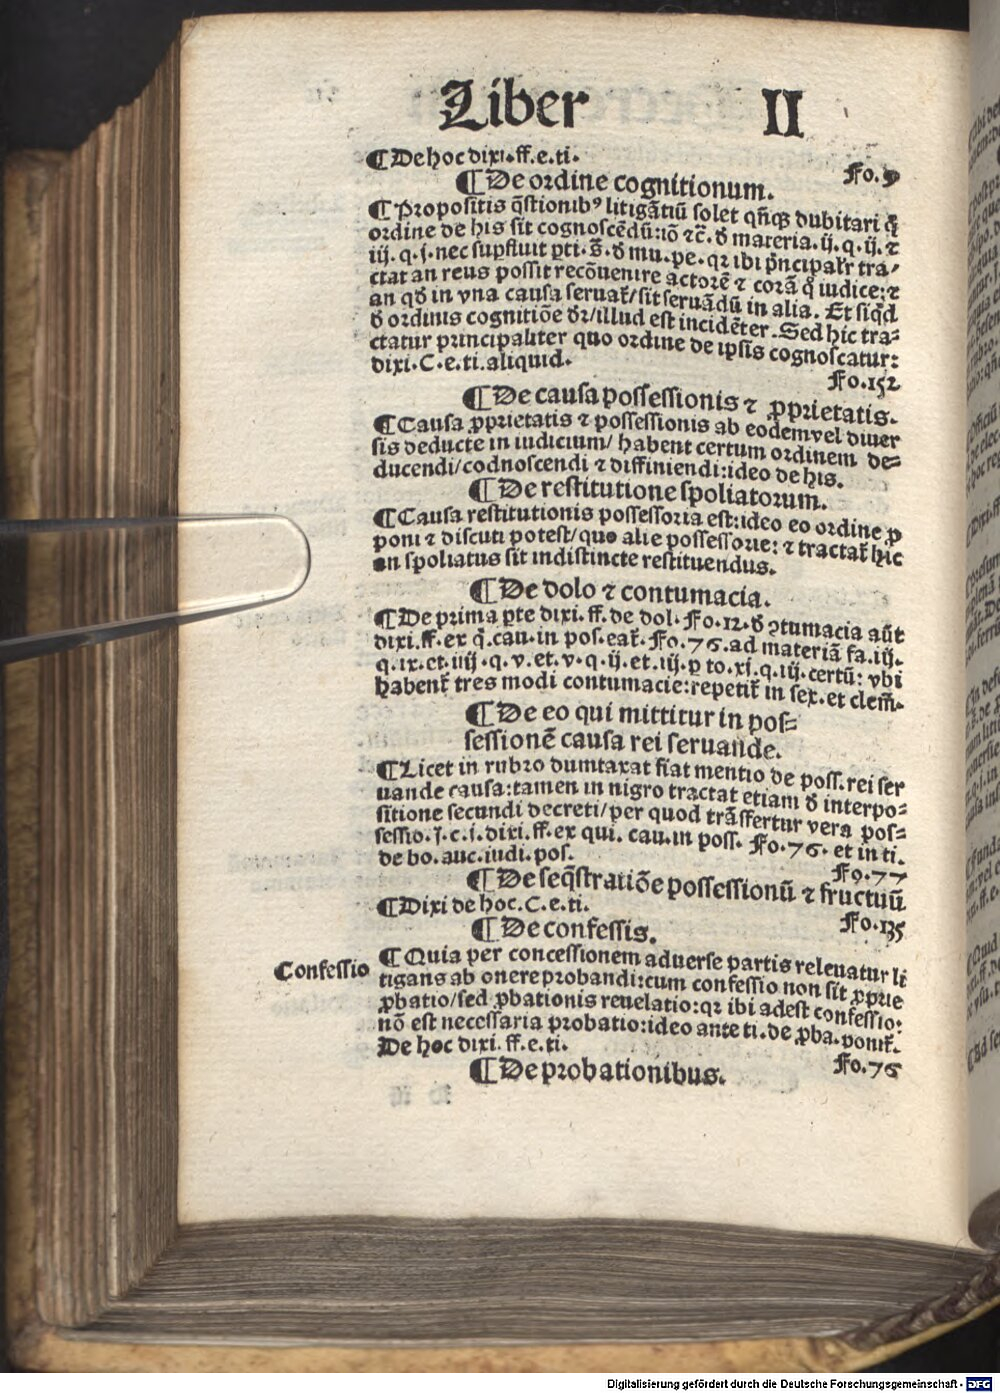 Liber II
¶ De hoc dixi. ff. e. ti. Fo. 9
¶ De ordine cognitionum.
¶ Propositis q̄stionibꝰ litigātiū solet qn̄qꝫ dubitari q̄
ordine de his sit cognoscēdū: iō ⁊c̄. d̄ materia. ij. q. ij. ⁊
iij. q. j. nec suꝑfluit ꝑti. s̄. d̄ mu. pe. qꝛ ibi p̄ncipalr̄ tra/
ctat an reus possit recōuenire actorē ⁊ corā q̄ iudice: ⁊
an qd̄ in vna causa seruat̄/ sit seruādū in alia. Et siq̄d
d̄ ordinis cognitiōe dr̄/ illud est incidēter. Sed hic tra⸗
ctatur principaliter quo ordine de ip̄sis cognoscatur:
dixi. C. e. ti. aliquid. Fo. 152
¶ De causa possessionis ⁊ ꝓprietatis.
¶ Causa ꝓprietatis ⁊ possessionis ab eodem vel diuer
sis deducte in iudicium/ habent certum ordinem de⸗
ducendi/ codnoscendi ⁊ diffiniendi: ideo de his.
¶ De restitutione spoliatorum.
¶ Causa restitutionis possessoria est: ideo eo ordine ꝓ
poni ⁊ discuti potest/ quo alie possessorie: ⁊ tractat̄ hic
an spoliatus sit indistincte restituendus.
¶ De dolo ⁊ contumacia.
¶ De prima ꝑte dixi. ff. de dol. Fo. 12. d̄ ꝯtumacia aūt
dixi. ff. ex q̄. cau. in pos. eat̄. Fo. 76. ad materiā fa. iij.
q. ix. et. iiij. q. v. et. v. q. ij. et. iij. ꝑ to. xj. q. iij. certū: vbi
habent̄ tres modi contumacie: repetit̄ in sex. et clem̄.
¶ De eo qui mittitur in pos⸗
sessionē causa rei seruande.
¶ Licet in rubro dumtaxat fiat mentio de poss. rei ser
uande causa: tamen in nigro tractat etiam d̄ interpo⸗
sitione secundi decreti/ per quod trāsfertur vera pos⸗
sessio. j. c. j. dixi. ff. ex qui. cau. in poss. Fo. 76. et in ti.
de bo. auc. iudi. pos. Fo. 77
¶ De seq̄stratiōe possessionū ⁊ fructuū
¶ Dixi de hoc. C. e. ti. Fo. 135
¶ De confessis.
Confessio ¶ Quia per concessionem aduerse partis releuatur li
tigans ab onere probandi: cum confessio non sit ꝓprie
ꝓbatio/ sed ꝓbationis reuelatio: qꝛ ibi adest confessio:
nō est necessaria probatio: ideo ante ti. de ꝓba. ponit̄.
De hoc dixi. ff. e. ti. Fo. 76
¶ De probationibus.
Digitalisierung gefördert durch die Deutsche Forschungsgemeinschaft - DFG